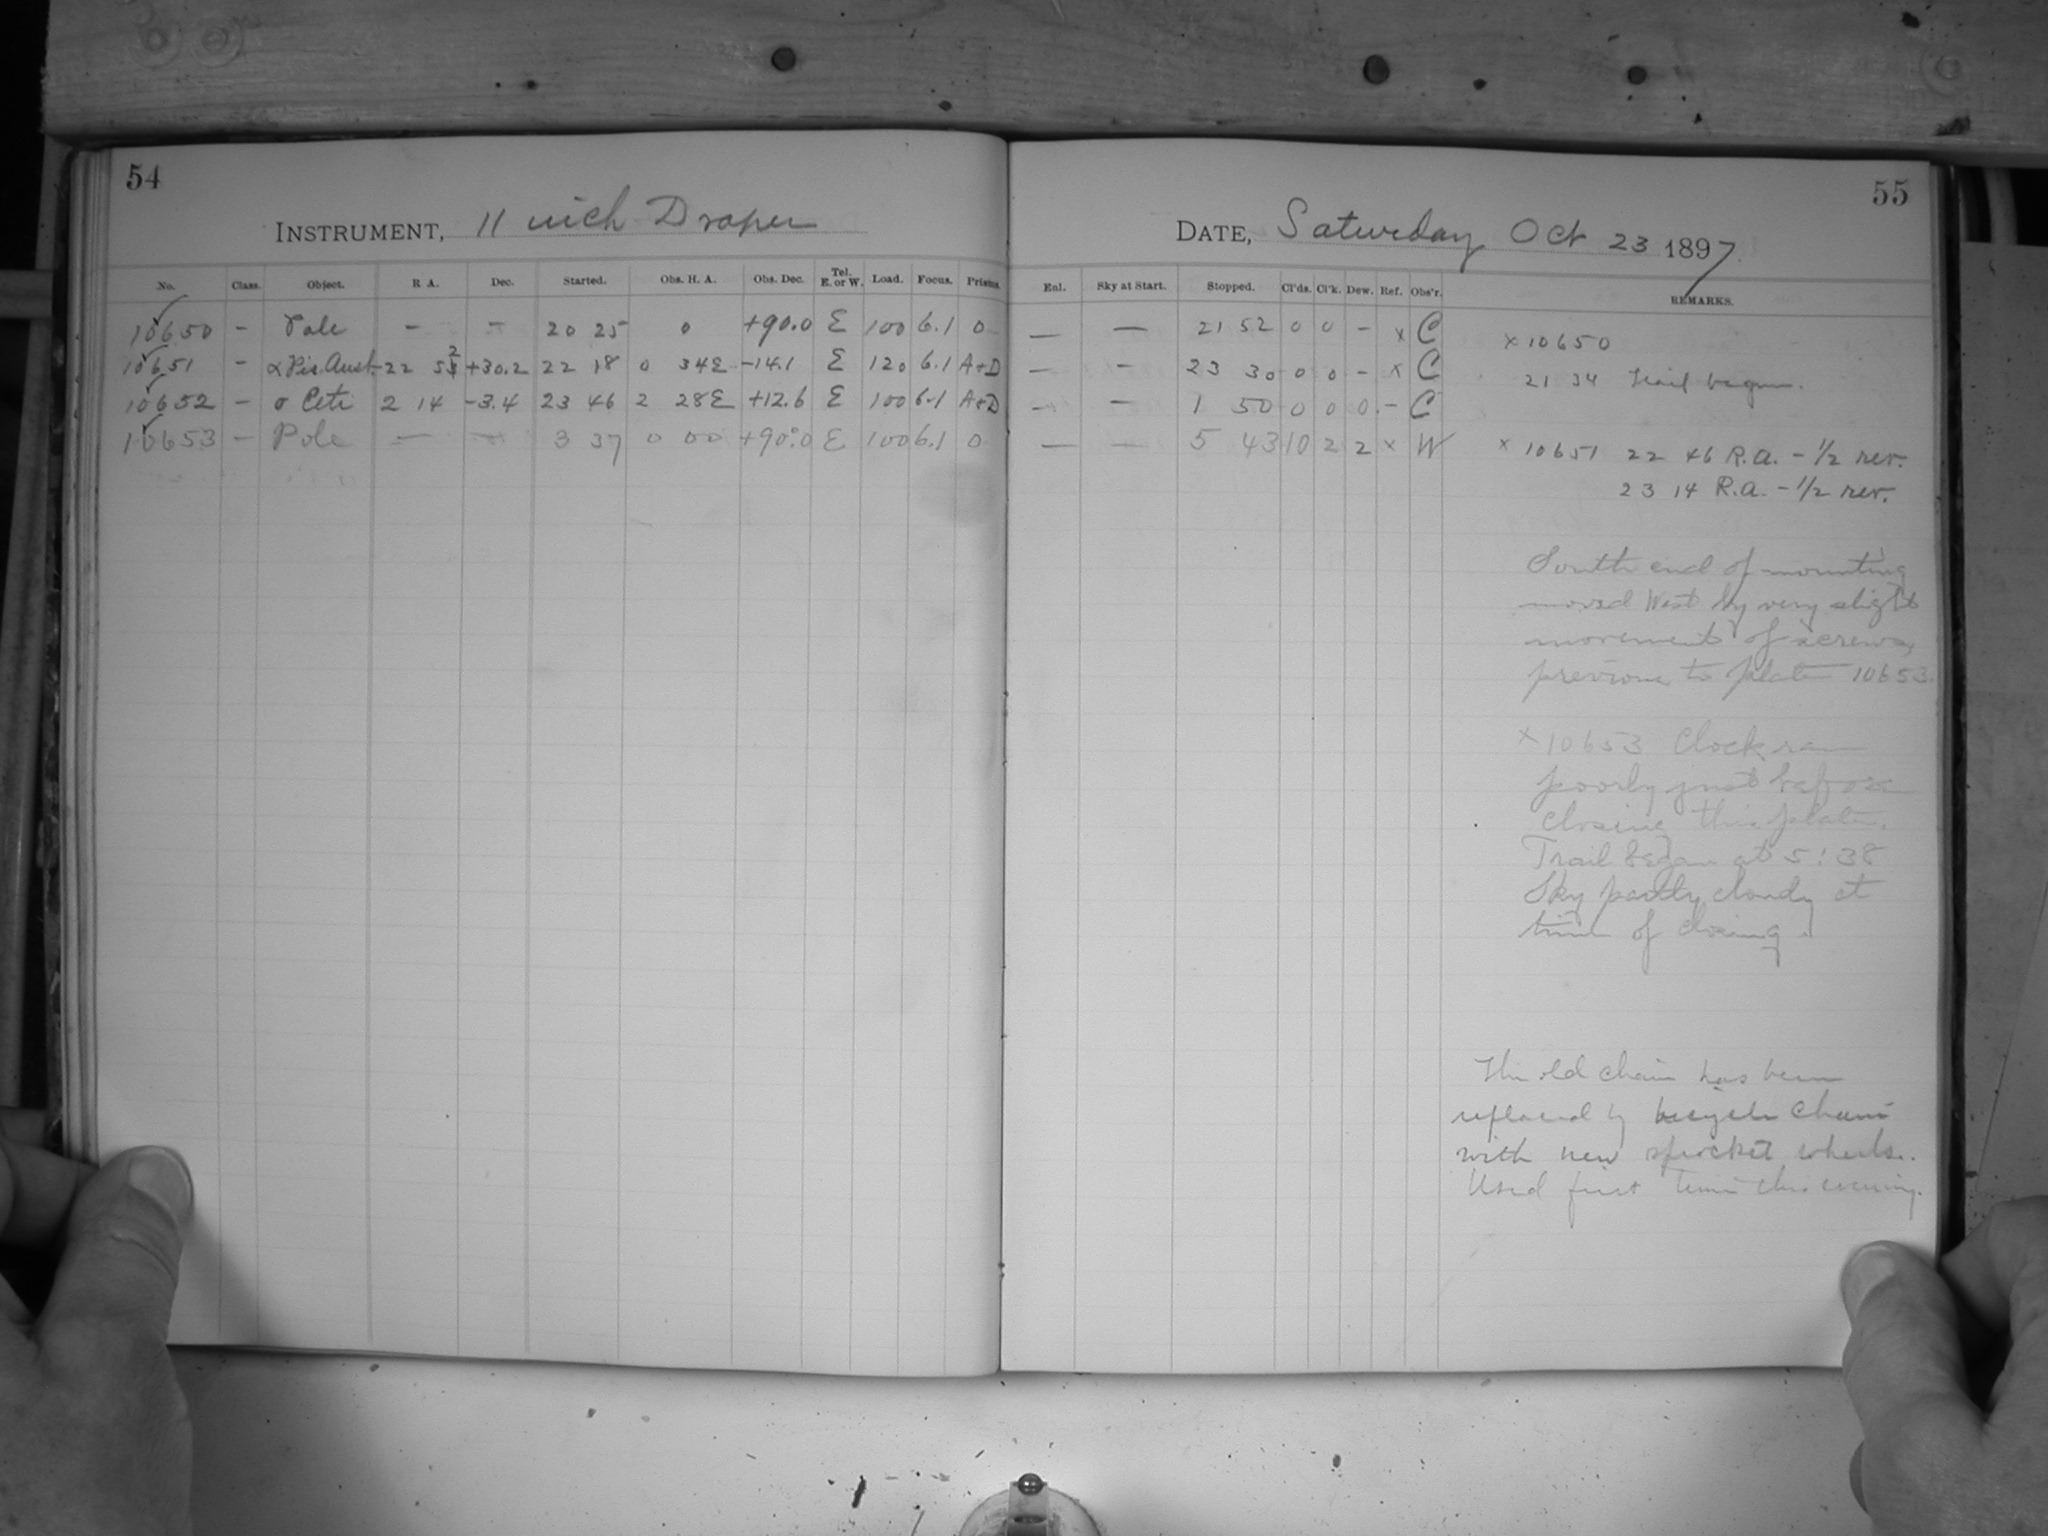 54
INSTRUMENT, 11 inch Draper
No. Class. Object. R A. Dec. Started. Obs. H. A. Obs. Dec. Tel. E. or W. Load. Focus. Prisms.
10650 - Pole - - 20 25 0 +90.0 E 100 6.1 0
10651 - α Pis. Aust. -22 52 +30.2 22 18 0 34E -14.1 E 120 6.1 A+D
10652 - o Ceti 2 14 -3.4 23 46 2 28E +12.6 E 100 6.1 A+D
10653 - Pole - - 3 37 0 00 +90.0 E 100 6.1 0
55
DATE, Saturday Oct 23 1897.
Enl. Sky at Start. Stopped. Cl'ds. Cl'k. Dew. Ref. Obs'r. REMARKS.
- - 21 52 0 0 - x C
- - 23 30 0 0 - x C
- - 1 50 0 0 0 - C
- - 5 43 10 2 2 x W
x 10650
21 34 Trail began.
x 10651 22 46 R.A. - 1/2 rev.
23 14 R.A. - 1/2 rev.
South end of mounting
moved West by very slight
movement of screws,
previous to plate 10653.
x 10653 Clock ran
poorly just before
closing this plate.
Trail began at 5:38
Sky partly cloudy at
time of closing.
The old chain has been
replaced by bicycle chain
with new sprocket wheels.
Used first time this evening.